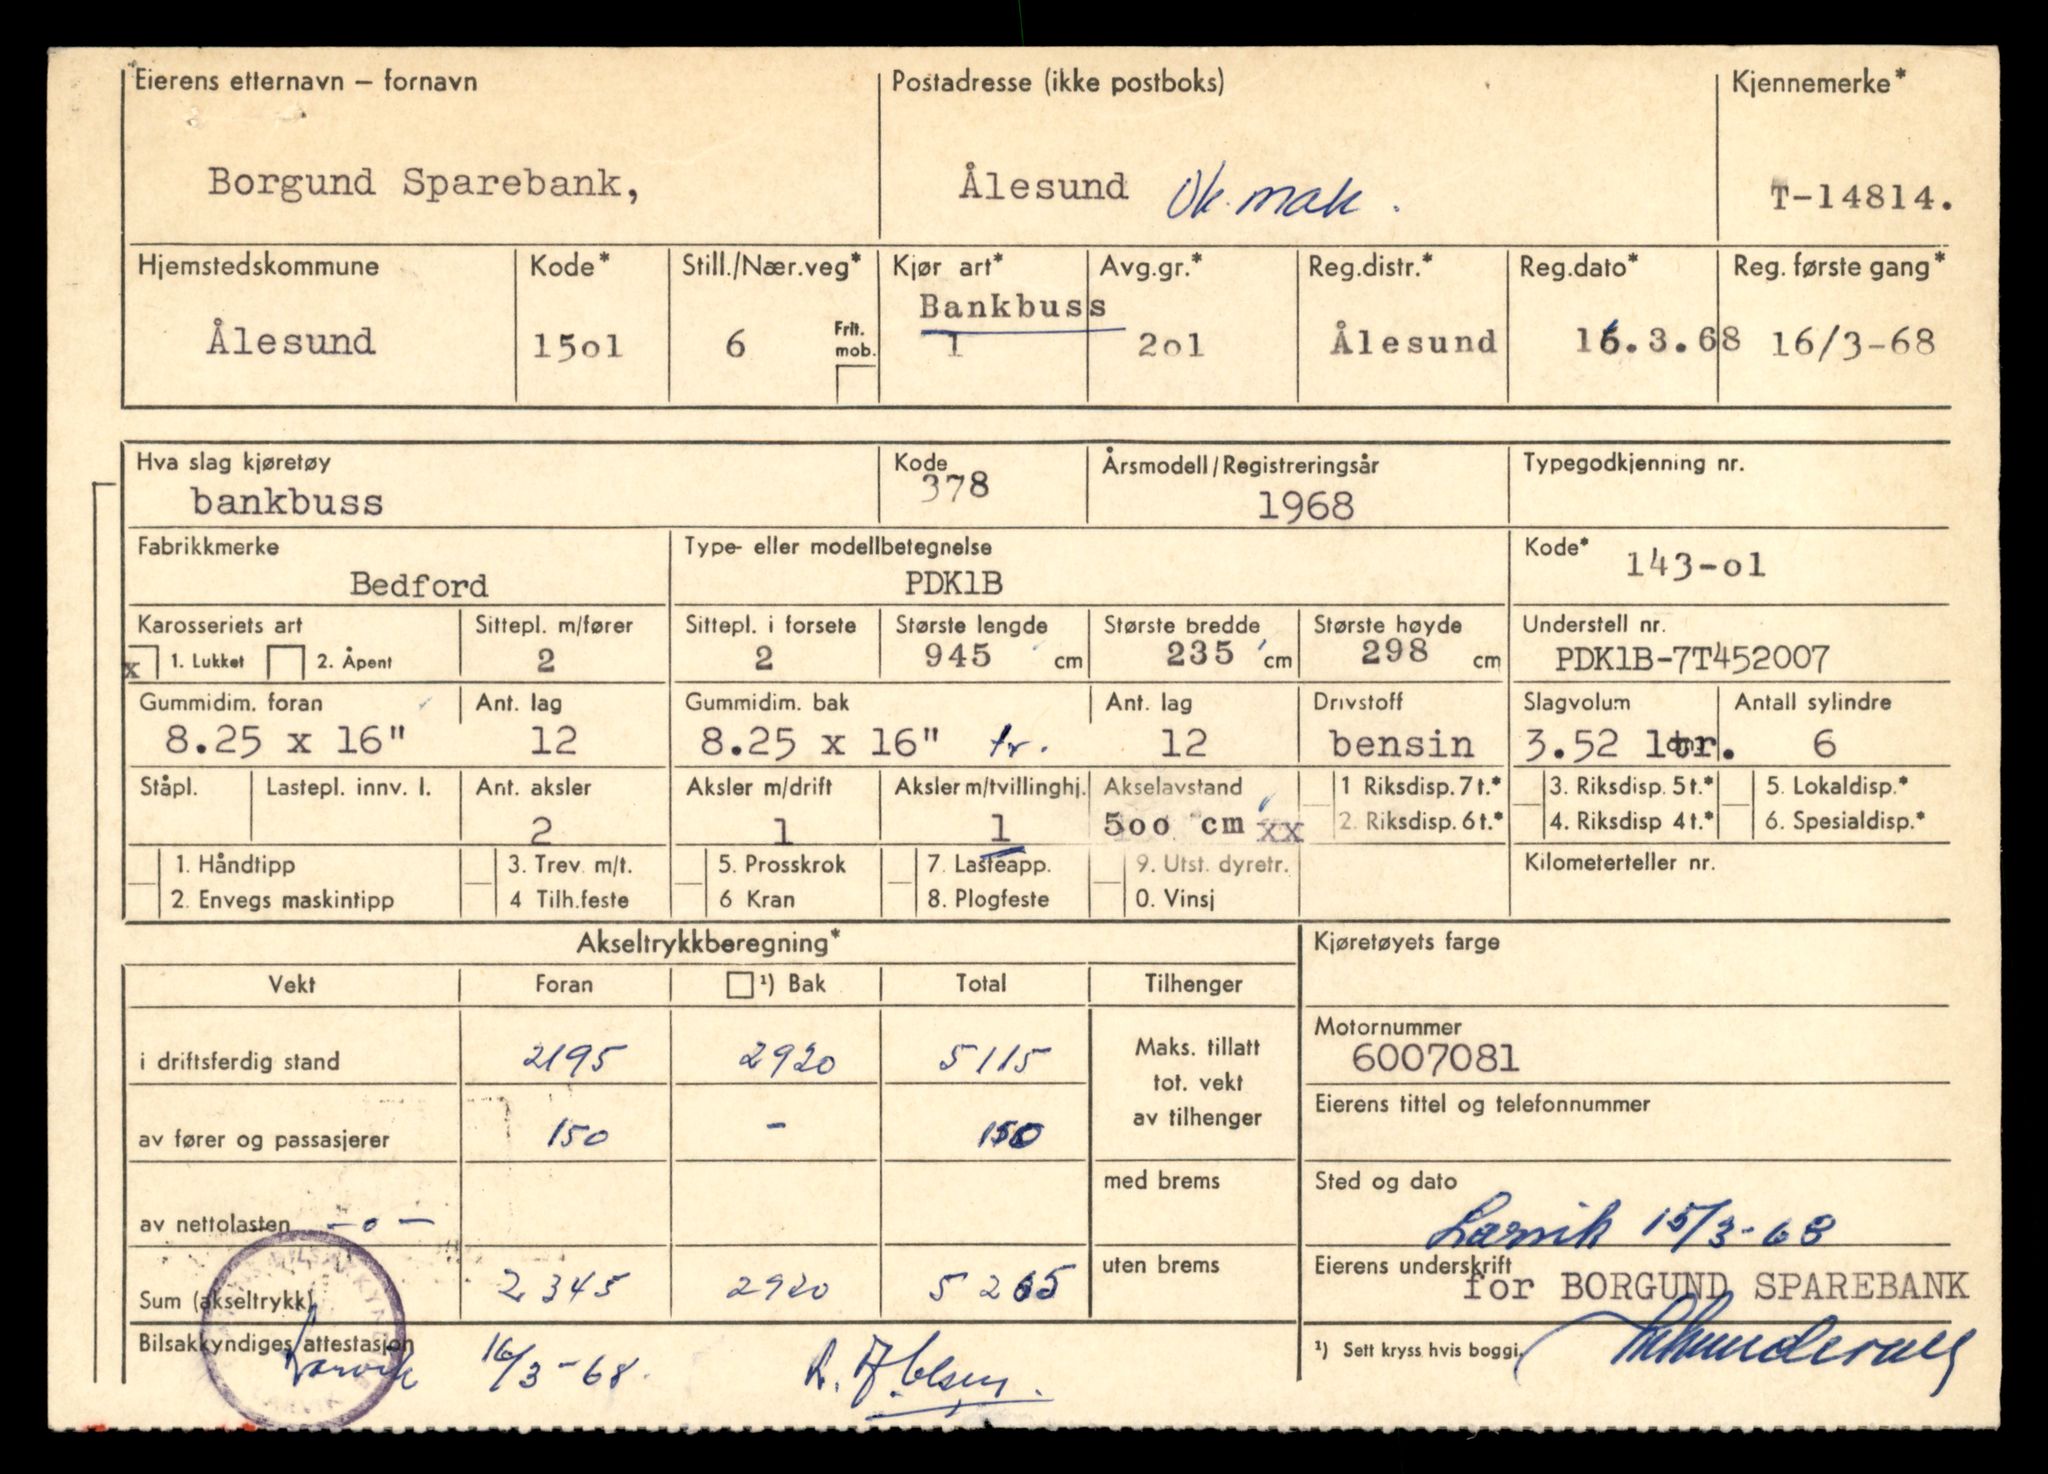 Eierens etternavn – fornavn Postadresse (ikke postboks) Kjennemerke*
Borgund Sparebank, Ålesund Ok. mak. T-14814.
Hjemstedskommune Kode* Still./Nær.veg* Kjør art* Avg.gr.* Reg.distr.* Reg.dato* Reg. første gang*
Bankbuss
Ålesund 15o1 6 Frit. mob. 1 2o1 Ålesund 16.3.68 16/3-68
Hva slag kjøretøy Kode Årsmodell/Registreringsår Typegodkjenning nr.
bankbuss 378 1968
Fabrikkmerke Type- eller modellbetegnelse Kode* 143-o1
Bedford PDK1B
Karosseriets art Sittepl. m/fører Sittepl. i forsete Største lengde Største bredde Største høyde Understell nr.
x 1. Lukket 2. Åpent 2 2 945 cm 235 cm 298 cm PDK1B-7T452007
Gummidim. foran Ant. lag Gummidim. bak Ant. lag Drivstoff Slagvolum Antall sylindre
8.25 x 16" 12 8.25 x 16" tv. 12 bensin 3.52 ltr. 6
Ståpl. Lastepl. innv. l. Ant. aksler Aksler m/drift Aksler m/tvillinghj. Akselavstand 1 Riksdisp. 7 t.* 3. Riksdisp. 5 t.* 5. Lokaldisp.*
2 1 1 5oo cm xx 2. Riksdisp. 6 t.* 4. Riksdisp 4 t.* 6. Spesialdisp.*
1. Håndtipp 3. Trev. m/t. 5. Prosskrok 7. Lasteapp. 9. Utst. dyretr. Kilometerteller nr.
2. Envegs maskintipp 4 Tilh.feste 6 Kran 8. Plogfeste 0. Vinsj
Akseltrykkberegning* Kjøretøyets farge
Vekt Foran ¹) Bak Total Tilhenger
i driftsferdig stand 2195 2920 5115 Maks. tillatt tot. vekt av tilhenger
Motornummer
6007081
Eierens tittel og telefonnummer
av fører og passasjerer 150 – 150
med brems Sted og dato
av nettolasten -o- Larvik 15/3-68
uten brems Eierens underskrift
Sum (akseltrykk) 2345 2920 5265 for BORGUND SPAREBANK
Bilsakkyndiges attestasjon ¹) Sett kryss hvis boggi.
Larvik 16/3-68.